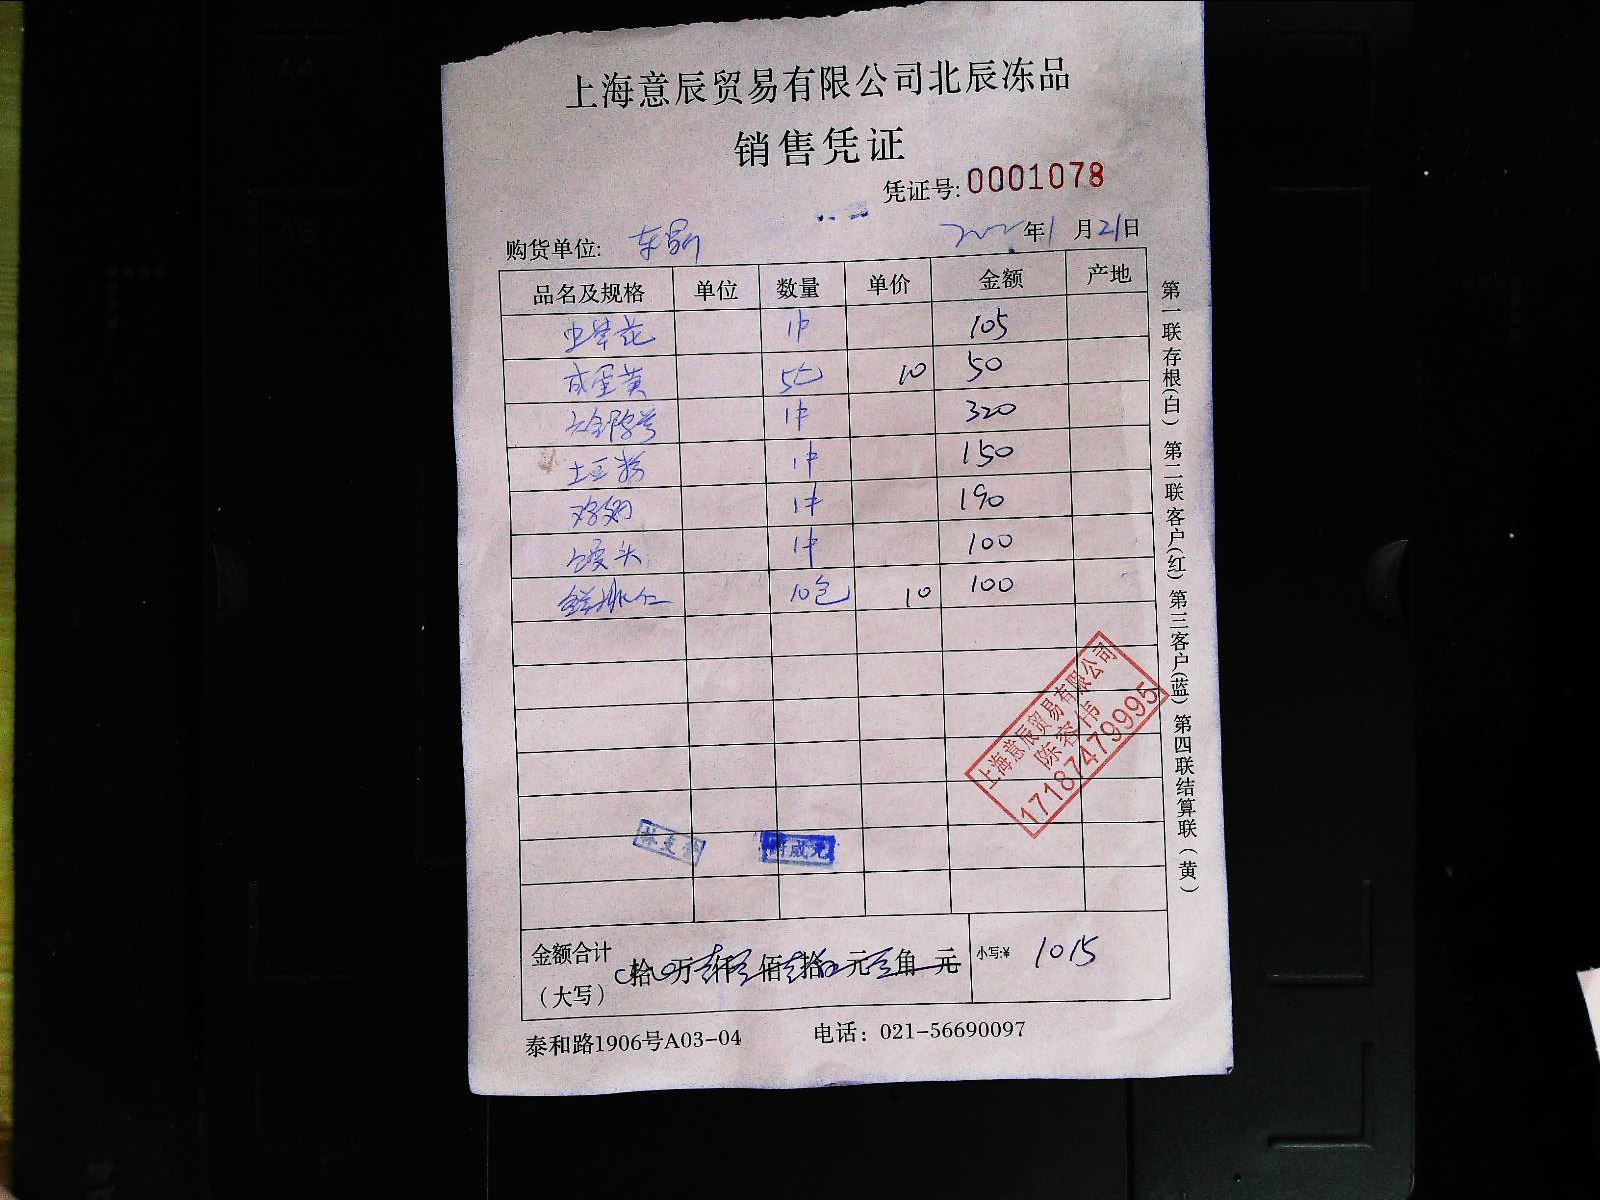 上海意辰贸易有限公司北辰冻品
销售凭证
凭证号: 0001078
购货单位: 年1月21日
品名及规格 单位 数量 单价 金额 产地
虫草花 1件 105
咸蛋黄 5包 10 50
1件 320
土豆粉 1件 150
鸡翅 1件 190
馒头 1件 100
10包 10 100
上海意辰贸易有限公司
陈容伟
17187479995
金额合计
（大写） 拾 万 仟 佰 拾 元 角 元 小写:¥ 1015
泰和路1906号A03-04 电话：021-56690097
第一联存根(白) 第二联客户(红) 第三客户(蓝) 第四联结算联（黄）